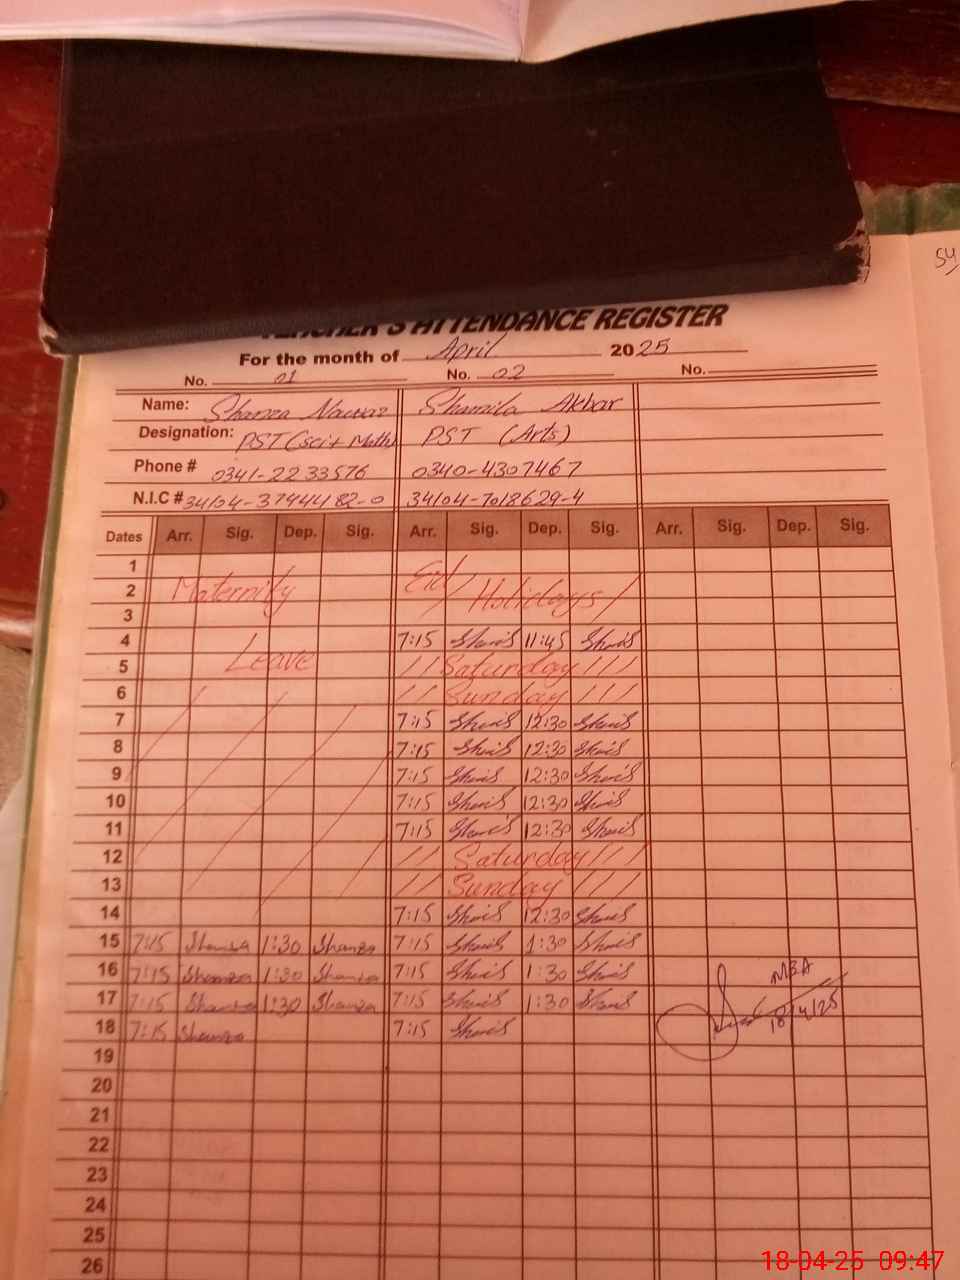 54
TEACHER'S ATTENDANCE REGISTER
For the month of April 2025
No. 01 No. 02 No.
Name: Shanza Nawaz Shamila Akbar
Designation: PST (Sci+Math) PST (Arts)
Phone # 0341-2233576 0340-4307467
N.I.C # 34104-3794482-0 34104-7018629-4
Dates Arr. Sig. Dep. Sig. Arr. Sig. Dep. Sig. Arr. Sig. Dep. Sig.
1 Eid
2 Maternity Holidays
3
4 Leave 7:15 11:45
5 Saturday
6 Sunday
7 7:15 12:30
8 7:15 12:30
9 7:15 12:30
10 7:15 12:30
11 7:15 12:30
12 Saturday
13 Sunday
14 7:15 12:30
15 7:15 Shanza 1:30 Shanza 7:15 1:30
16 7:15 Shanza 1:30 Shanza 7:15 1:30 MEA
17 7:15 Shanza 1:30 Shanza 7:15 1:30 18/4/25
18 7:15 Shanza 7:15
19
20
21
22
23
24
25
26
18-04-25 09:47